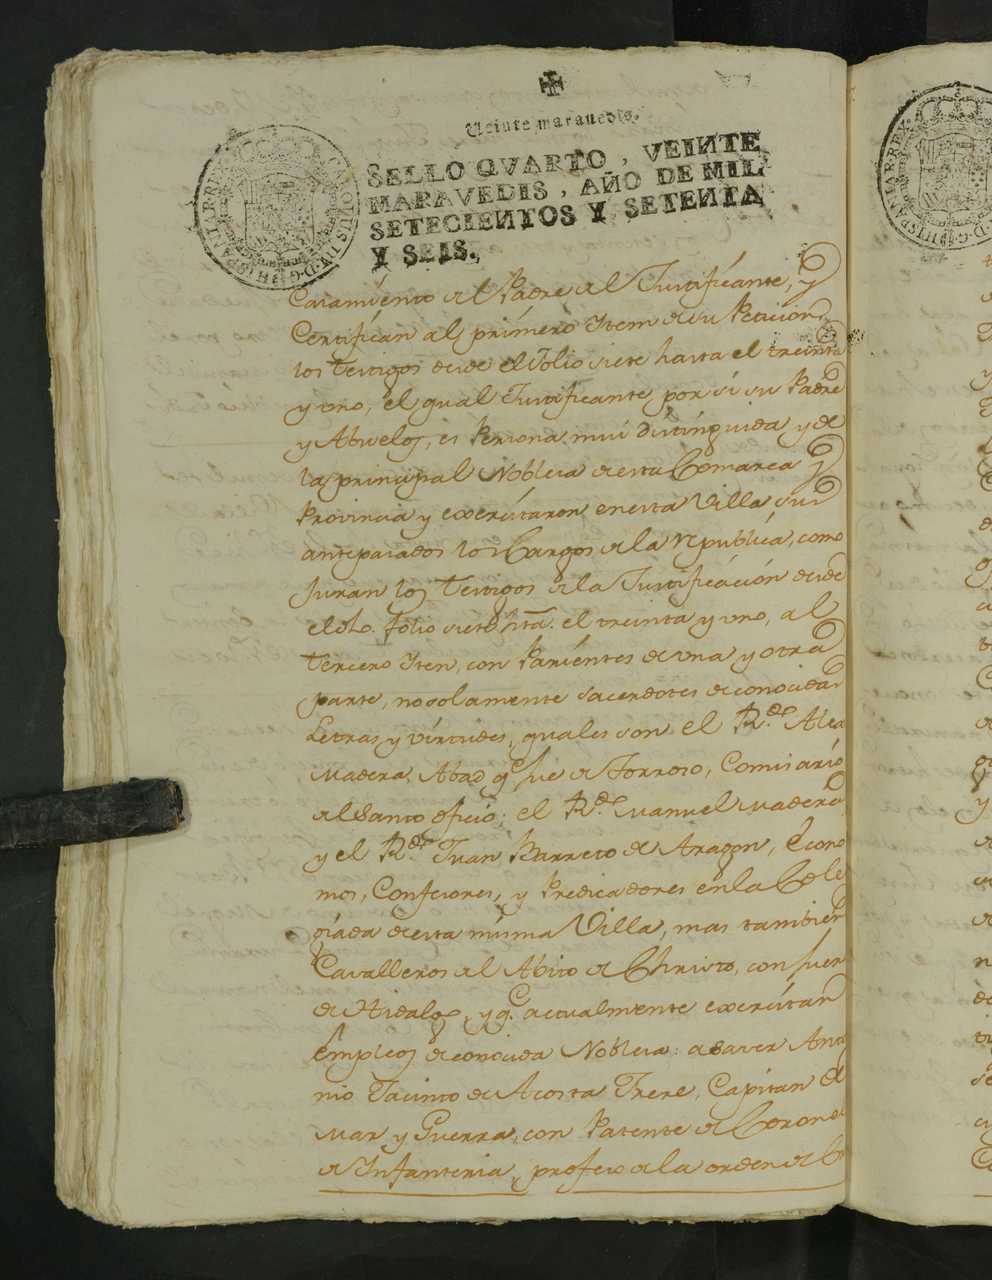 Veinte maravedis.
SELLO QVARTO, VEINTE
MARAVEDIS, AÑO DE MIL
SETECIENTOS Y SETENTA
Y SEIS.
CAROLUS III D. G. HISPANIAR. REX
Casamiento del Padre del Justificante, y
Certifican al primero Item de su Peticion
los Testigos desde el Folio siete hasta el treinta
y uno, el qual Justificante por si su Padre
y Abuelos, es Persona mui distinguida y de
la principal Nobleza de esta Comarca y
Provincia y exercitaron en esta Villa sus
antepasados los Cargos de la republica, como
Juran los Testigos de la Justificación desde
el dho. folio siete hta. el treinta y uno, al
tercero Iten, con Parientes de una y otra
parte, no solamente sacerdotes de conocidas
Letras y virtudes, quales son el R.do
Madera, Abad q.e fue de Torroso, Comisario
del Santo oficio; el R.do Manuel Madera
y el R.do Juan Barreto de Aragon, Econo
mos, Confesores, y Predicadores en la Cole
giada de esta misma Villa, mas tambien
Cavalleros del Abito de Christo, con fuer
de Hidalgos, y q.e actualmente exercitan
Empleos de conocida Nobleza: a saver Anto
nio Jacinto de Acosta Frere, Capitan de
Mar y Guerra, con Patente de Coronel
de Infanteria, profeso de la orden de